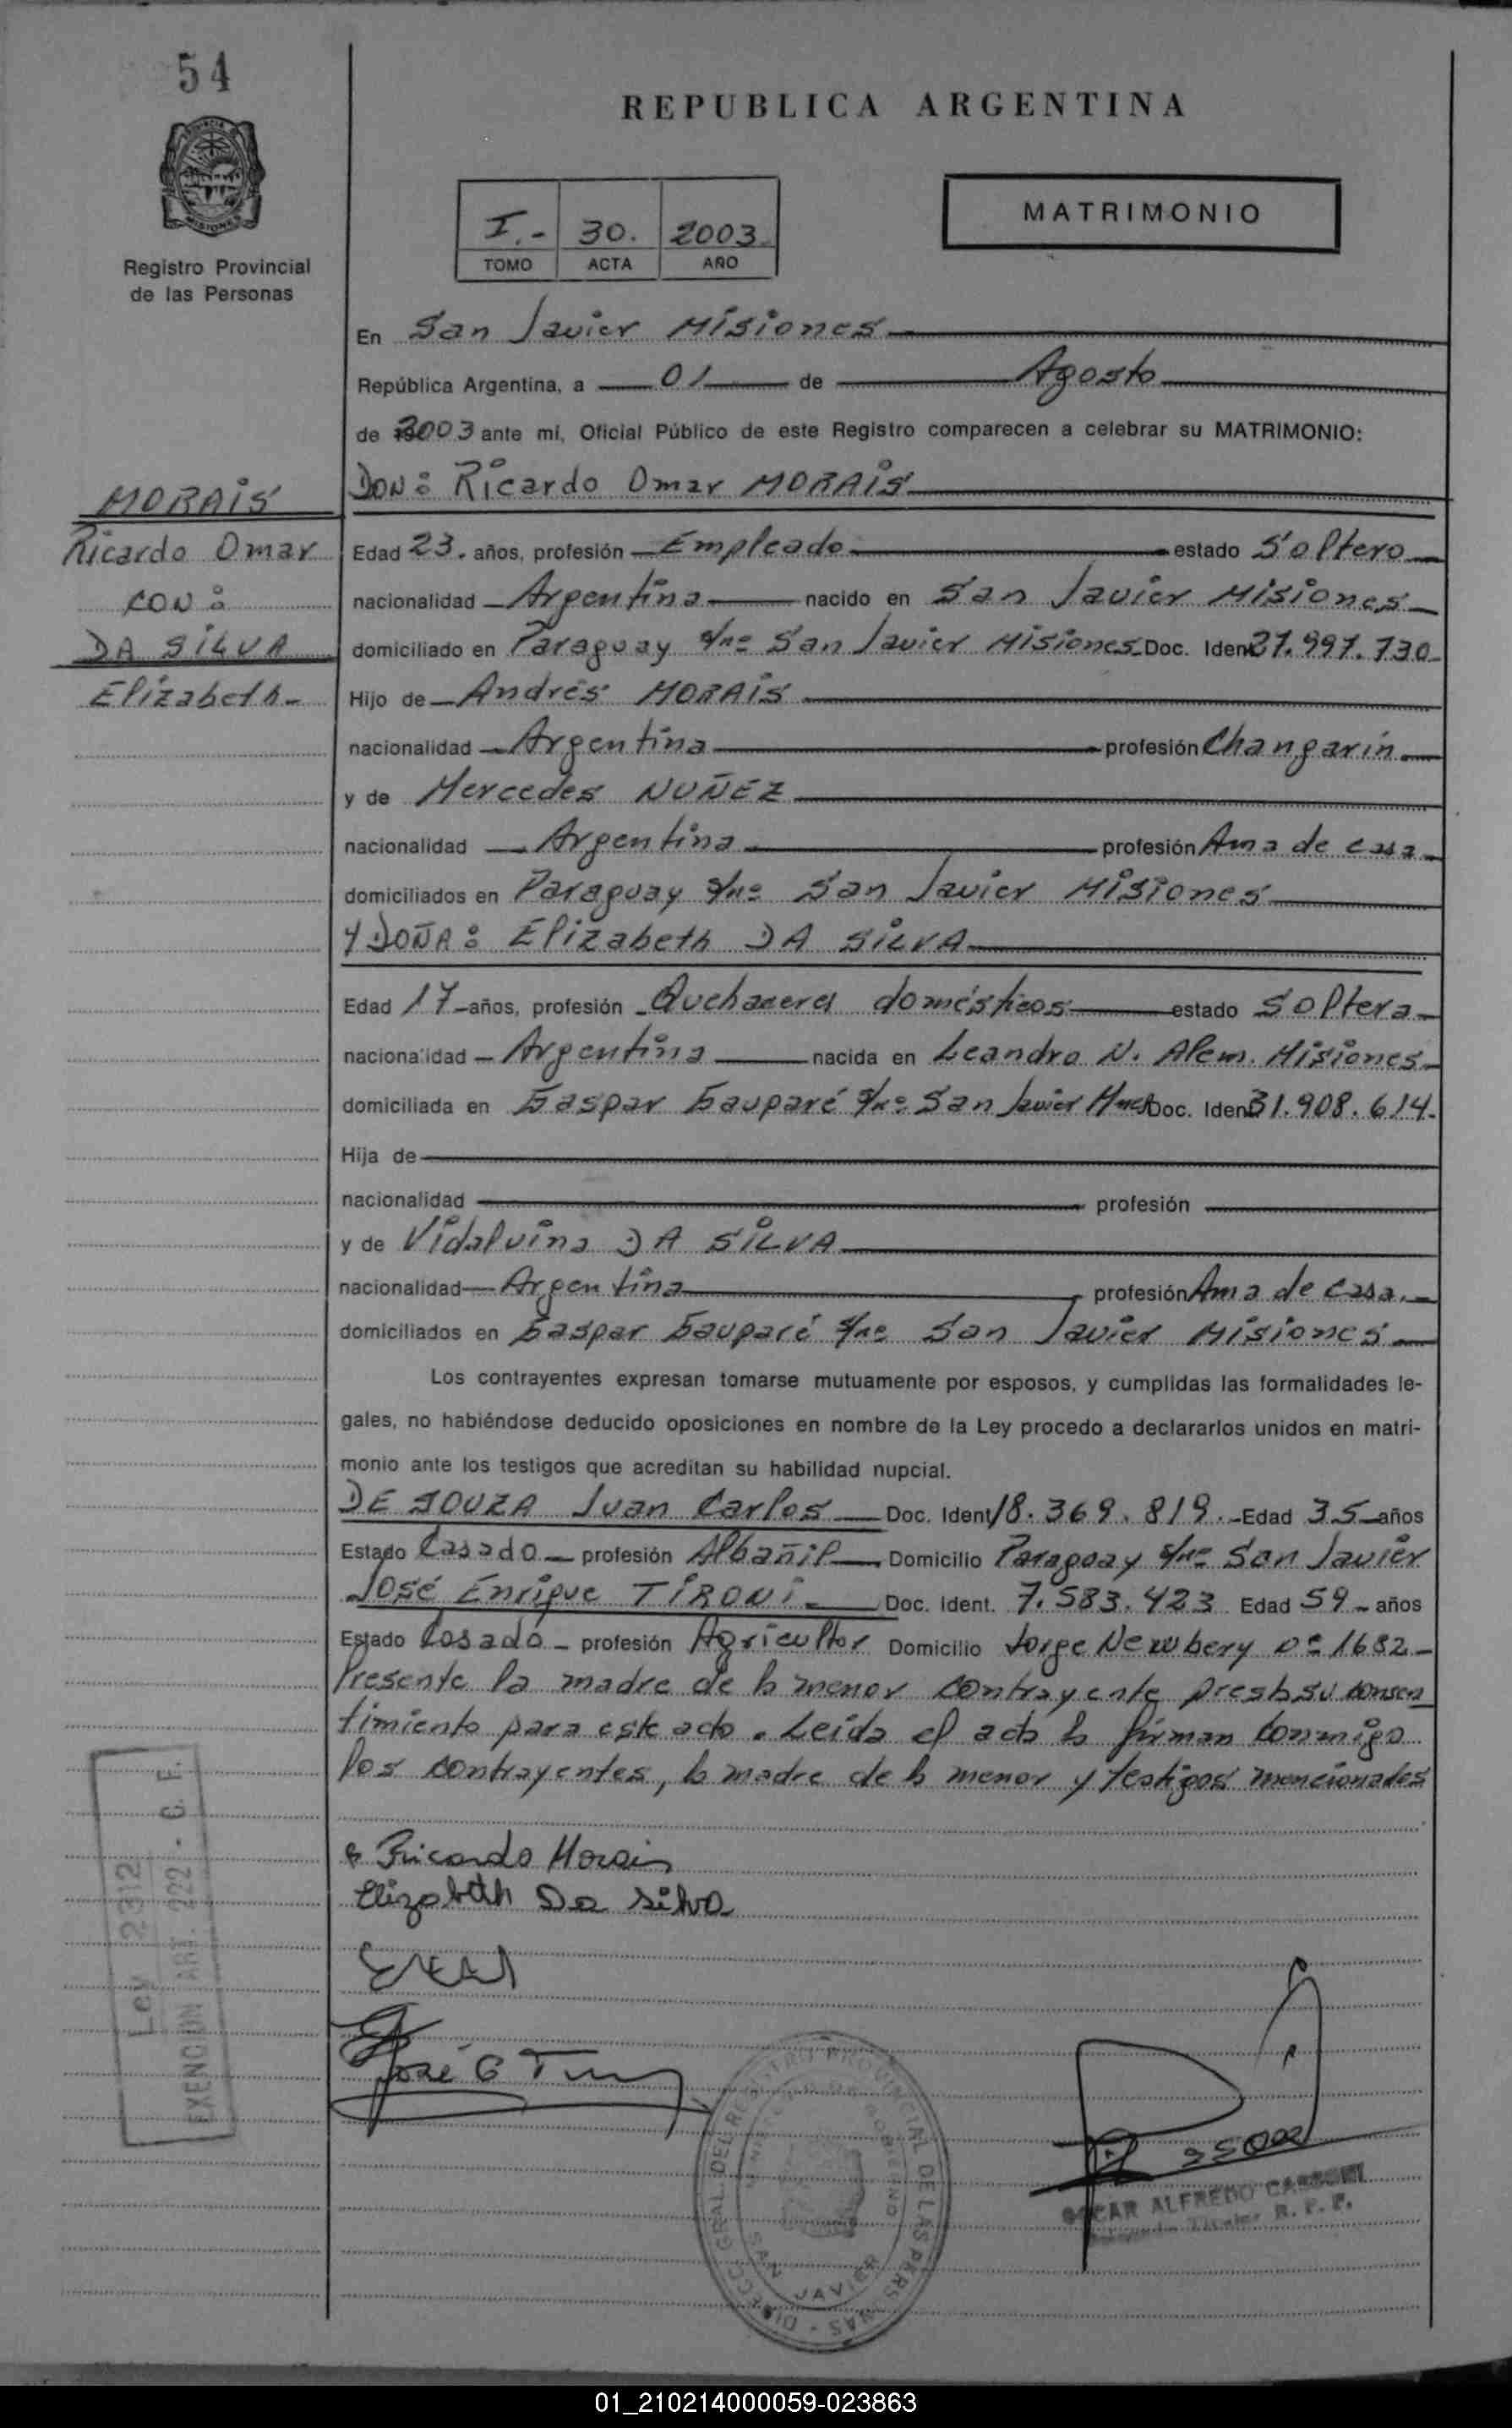 54
REPUBLICA ARGENTINA
MISIONES
Registro Provincial
de las Personas
I.- 30. 2003
TOMO ACTA AÑO
MATRIMONIO
En San Javier Misiones
República Argentina, a 01 de Agosto
de 2003 ante mí, Oficial Público de este Registro comparecen a celebrar su MATRIMONIO:
DON: Ricardo Omar MORAIS
MORAIS
Ricardo Omar
CON:
DA SILVA
Elizabeth-
Edad 23. años, profesión Empleado estado Soltero
nacionalidad Argentina nacido en San Javier Misiones
domiciliado en Paraguay s/nº San Javier Misiones Doc. Iden 27.997.730
Hijo de Andrés MORAIS
nacionalidad Argentina profesión Changarín
y de Mercedes NUÑEZ
nacionalidad Argentina profesión Ama de casa
domiciliados en Paraguay s/nº San Javier Misiones
Y DOÑA: Elizabeth DA SILVA
Edad 17 años, profesión Quehaceres domésticos estado Soltera
nacionalidad Argentina nacida en Leandro N. Alem. Misiones
domiciliada en Gaspar Gauparé s/nº San Javier Mnes Doc. Iden 31.908.614.
Hija de
nacionalidad profesión
y de Vidalvina DA SILVA
nacionalidad Argentina profesión Ama de Casa.
domiciliados en Gaspar Gauparé s/nº San Javier Misiones
Los contrayentes expresan tomarse mutuamente por esposos, y cumplidas las formalidades le-
gales, no habiéndose deducido oposiciones en nombre de la Ley procedo a declararlos unidos en matri-
monio ante los testigos que acreditan su habilidad nupcial.
DE SOUZA Juan Carlos Doc. Ident 18.369.819. Edad 35 años
Estado Casado profesión Albañil Domicilio Paraguay s/nº San Javier
José Enrique TIRONI Doc. Ident. 7.583.423 Edad 59 años
Estado Casado profesión Agricultor Domicilio Jorge Newbery nº 1682
Presente la madre de la menor contrayente presta su consen
timiento para este acto. Leída el acta la firman conmigo
los contrayentes, la madre de la menor y testigos mencionados
Ricardo Morais
Elizabeth Da silva
José E
Ley 2312
EXENCION ART. 222 - C. F.
DIRECC. GRAL. DEL REGISTRO PROVINCIAL DE LAS PERSONAS
MINISTERIO DE GOBIERNO
SAN JAVIER
OSCAR ALFREDO
Titular R. P. P.
01_210214000059-023863